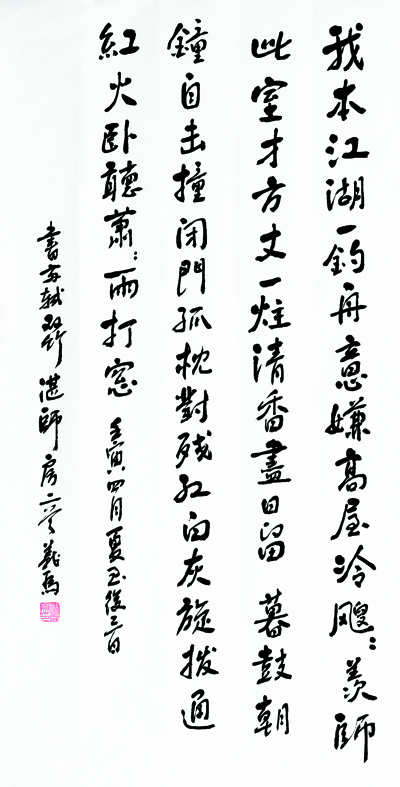 我本江湖一釣舟意嫌高屋冷颼:羨師
此室才方丈一炷清香盡日留 暮鼓朝
鐘自击撞閉門孤枕對残釭白灰旋撥通
紅火卧聽蕭:雨打窓 壬寅四月夏後三日
書苏軾雙竹湛師房二首 義